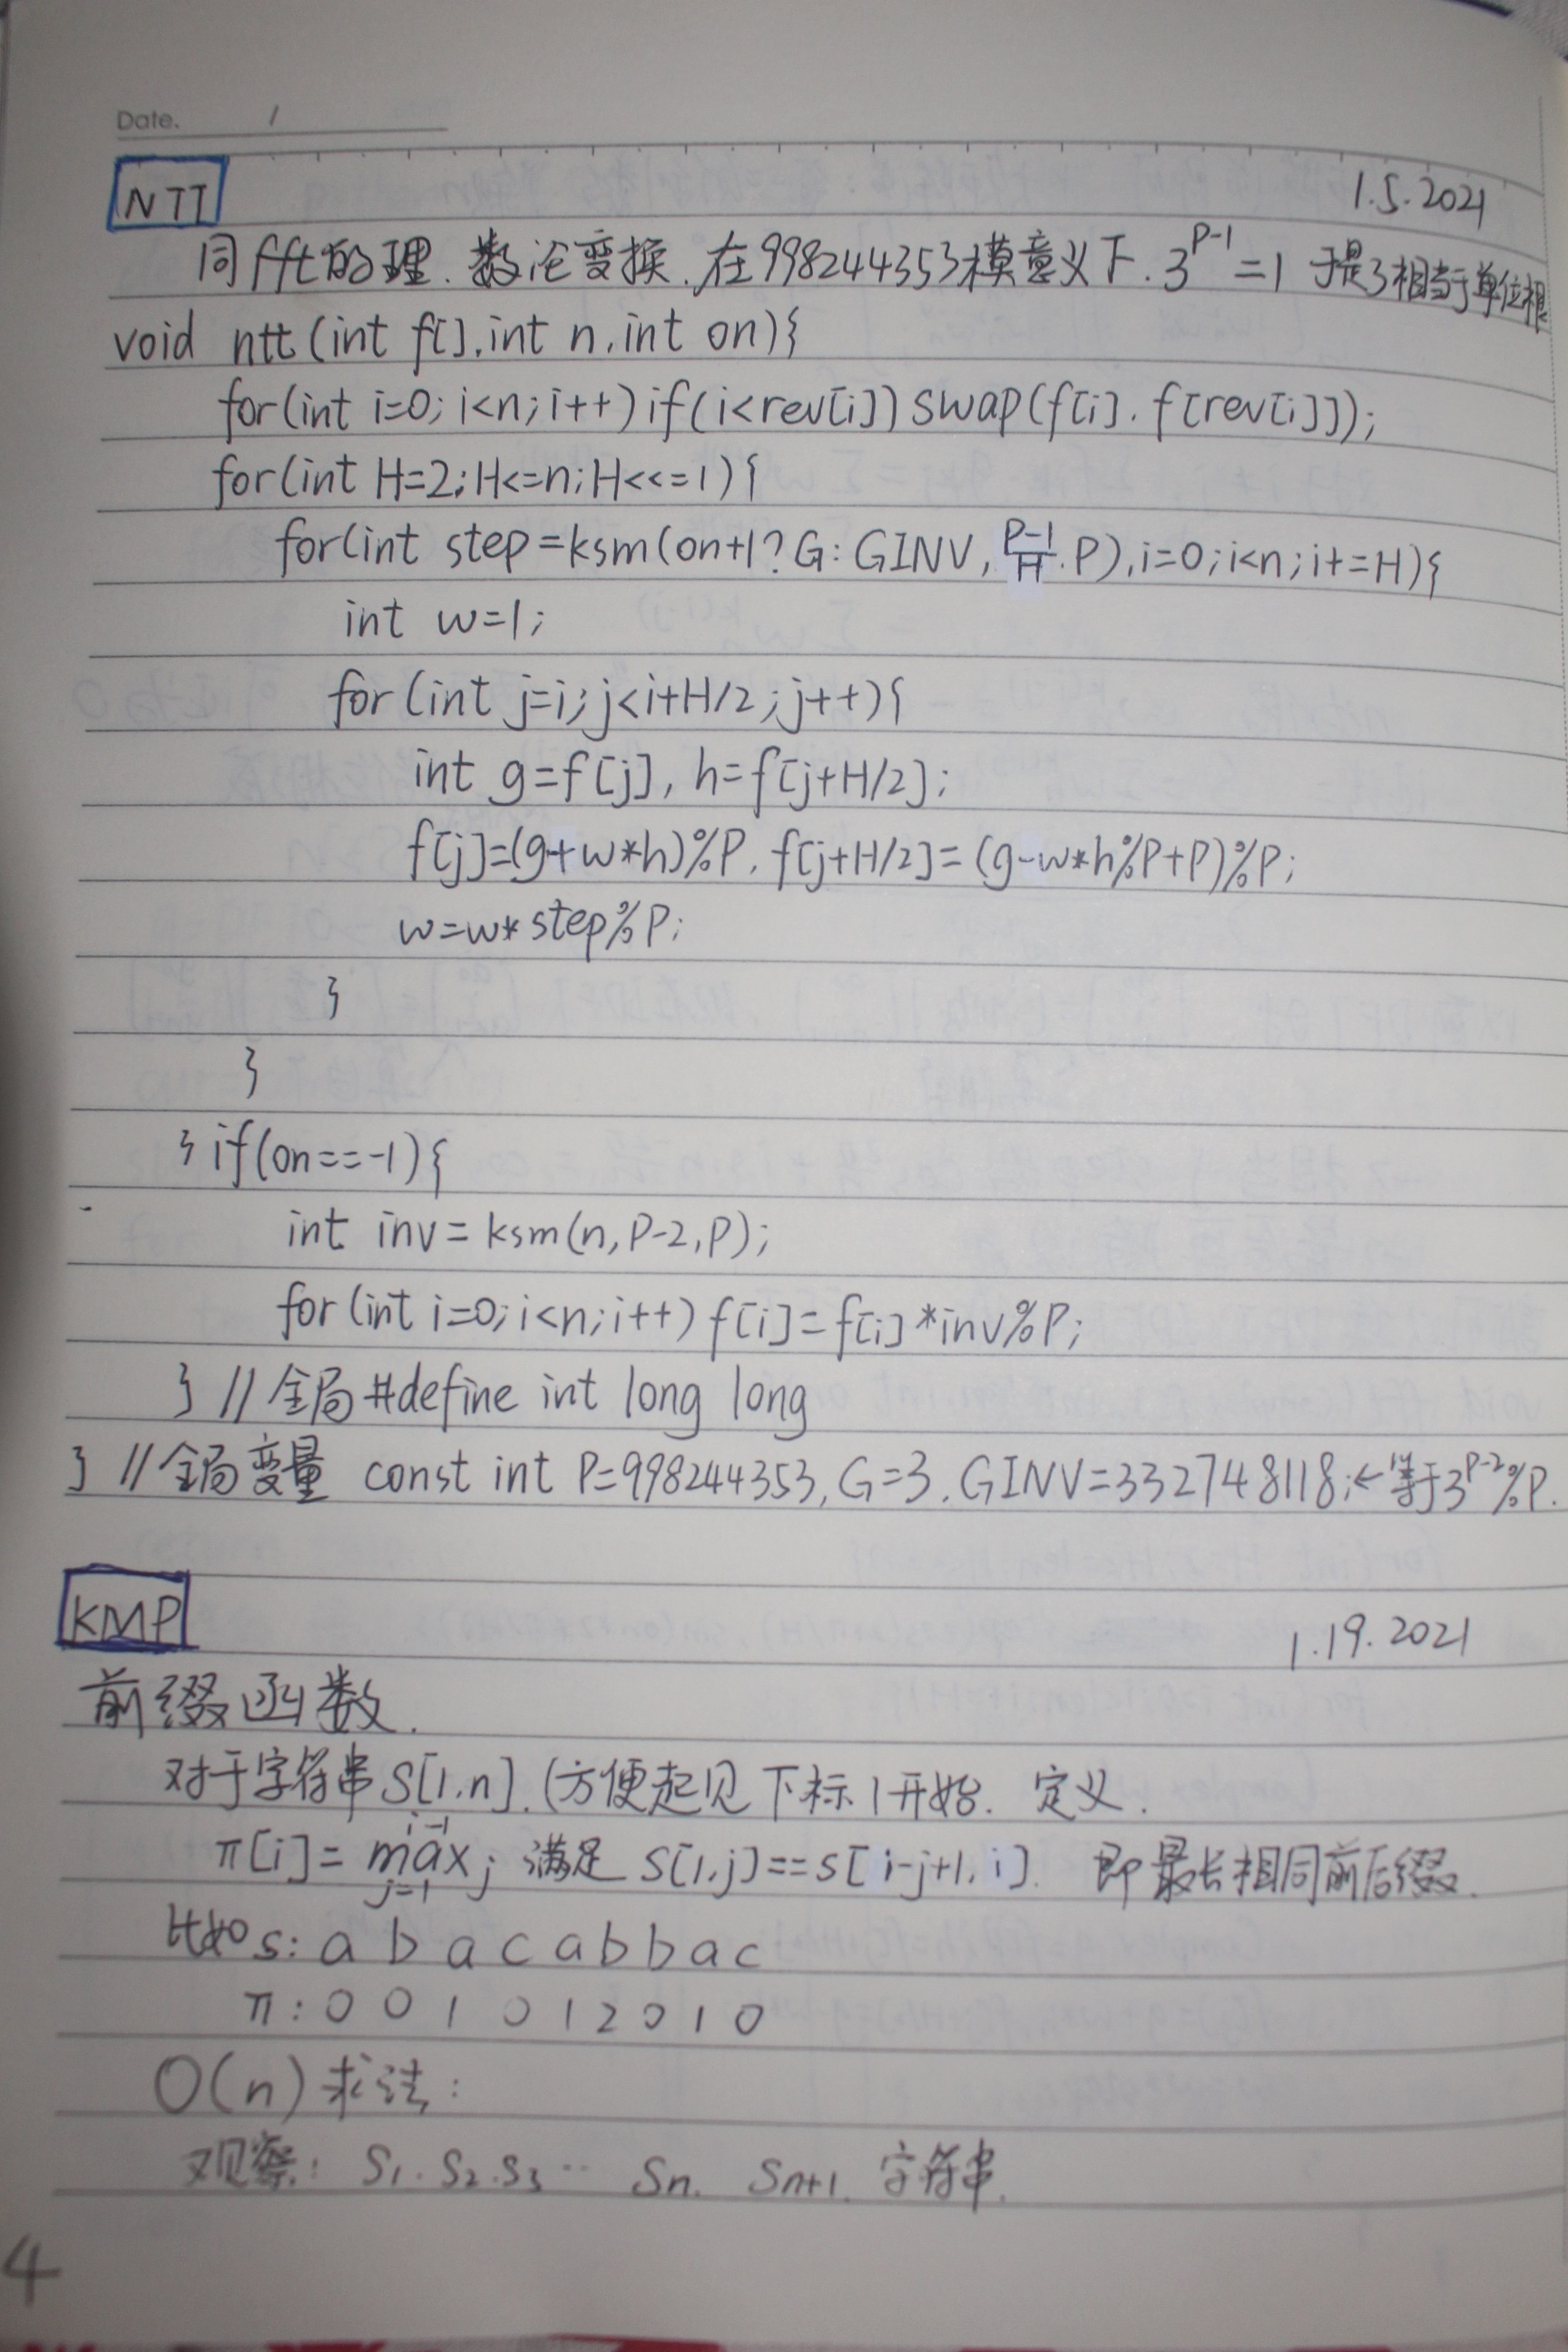 Date. /
NTT
1.5.2021
同fft的理.数论变换.在998244353模意义下.3^{P-1}=1 于是3相当于单位根
void ntt(int f[],int n,int on){
for(int i=0;i<n;i++)if(i<rev[i])swap(f[i].f[rev[i]]);
for(int H=2;H<=n;H<<=1){
for(int step=ksm(on+1?G:GINV,\frac{P-1}{H}.P),i=0;i<n;i+=H){
int w=1;
for(int j=i;j<i+H/2;j++){
int g=f[j],h=f[j+H/2];
f[j]=(g+w*h)%P.f[j+H/2]=(g-w*h%P+P)%P;
w=w*step%P;
}
}
}if(on==-1){
int inv=ksm(n,P-2,P);
for(int i=0;i<n;i++)f[i]=f[i]*inv%P;
}//全局#define int long long
}//全局变量 const int P=998244353,G=3.GINV=332748118;←等于3^{P-2}%P.
KMP
1.19.2021
前缀函数.
对于字符串S[1,n].(方便起见下标1开始.定义.
π[i]=\max_{j=1}^{i-1}j 满足 S[1,j]==s[i-j+1,i]. 即最长相同前后缀.
比如s:a b a c a b b a c
π:0 0 1 0 1 2 0 1 0
O(n)求法:
观察: S₁.S₂.S₃… Sn. Sn+1. 字符串.
4